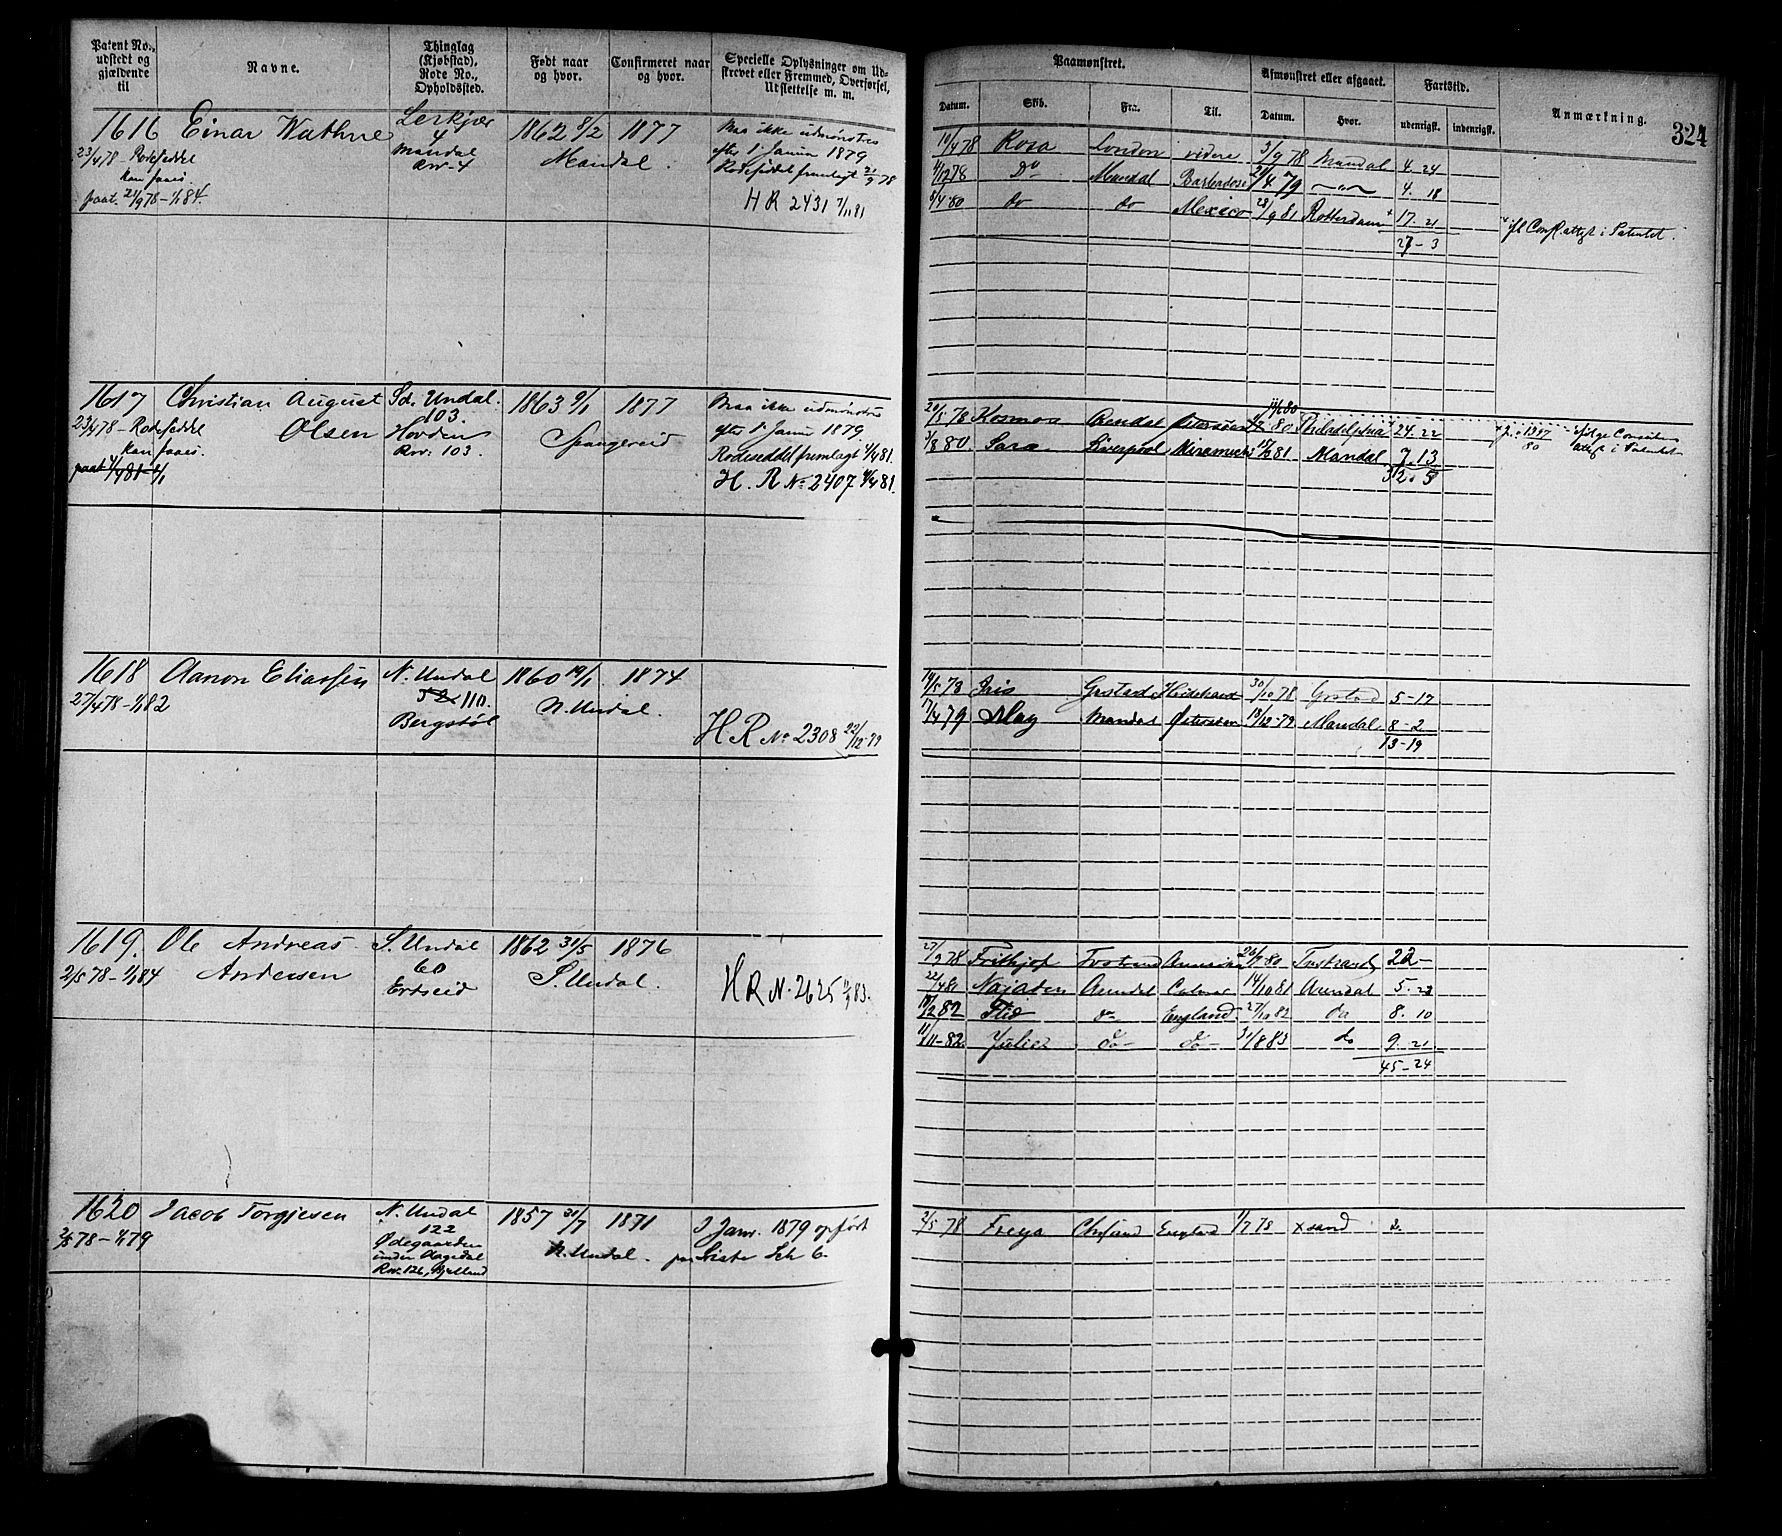 Patent No., udstedt og gjældende til
Navne.
Thinglag (Kjøbstad), Rode No., Opholdssted.
Født naar og hvor.
Confirmeret naar og hvor.
Specielle Oplysninger om Udskrevet eller Fremmed, Overførsel, Udslettelse m. m.
Paamønstret.
Afmønstret eller afgaaet.
Fartstid.
Anmærkning.
324
Datum.
Skib.
Fra.
Til.
Datum.
Hvor.
udenrigsk.
indenrigsk.
1616 Einar Wathne
Lerkjær
4
Mandal
Rov 4
1862 8/2 1877
Mandal.
23/4 78 - Rodeseddel
kan faaes.
paat. 21/9 78 - 1/1 84.
Maa ikke udmønstres
efter 1. Januar 1879
Rodeseddel fremlagt 21/9 78
H R 2431 7/11 81
19/4 78 Rosa London videre 3/9 78 Mandal 4. 24
4/12 78 Do Mandal Barbados 4. 18
6/4 80 do do Mexico 28/9 81 Rotterdam + 17. 21
27 - 3
+ ifl Conf. attest i Patentet.
1617 Christian August
Olsen
Sd. Undal.
103.
Hovden
Rov. 103.
1863 9/1 1877
Spangereid
23/4 78 - Rodeseddel
kan faaes.
paat 4/4 81 - 1/1
Maa ikke udmønstres
efter 1. Januar 1879.
Rodeseddel fremlagt 4/4 81.
H. R No 2407 4/4 81.
20/5 78 Kosmos Arendal 80 Philadelphia + 24. 22
3/8 80 Sara Liverpool Miramichi 81 Mandal 7. 13
32. 5
attest i Patentet
1618 Aanon Eliassen
N. Undal
52 110.
Bergstøl
1860 19/1 1874
N. Undal.
27/4 78 - 1/1 82
H R No 2308 22/12 79
14/5 78 Iris Grstad 30/10 78 Grstad 5 - 17
17/4 79 May Mandal Østersøen 18/12 79 Mandal. 8 - 2
13 - 19
1619. Ole Andreas
Andersen
S. Undal
60
Ertseid
1862 31/5 1876
S. Undal.
2/5 78 - 1/1 84
H R N. 2625 83.
27/9 78 Frithjof Amerika 80 22 -
22/4 81 Najaden Arendal 14/10 81 Arendal 5. 23
82 do England. 27/10 82 do 8. 10
11/11 - 82. Julie do - do - 31/8 83 do 9. 21
45 - 24
1620 Jacob Torgjesen
N. Undal
122
Ødegaarden
under Aagedal
Rov. 126, Kjelland
1857 31/7 1871
N. Undal.
2/5 78 - 1/1 79
I Janr. 1879 opført
paa Liste Sch 6.
2/5 78 Freya England 1/7 78 Xsand 2.